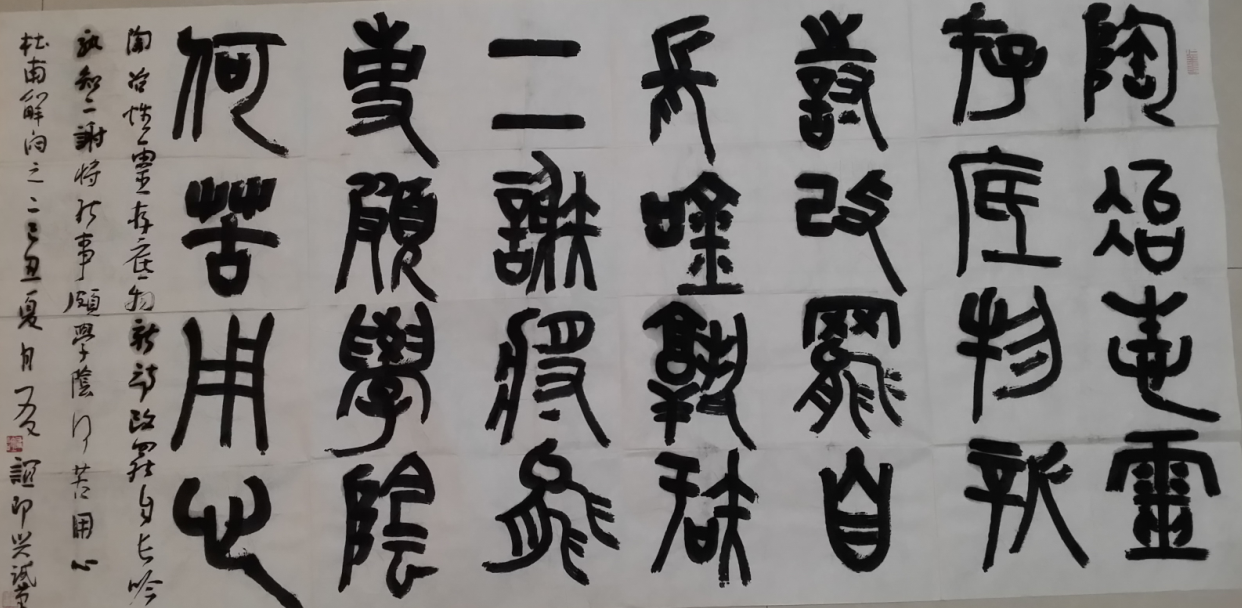 陶冶性靈
存底物新
詩改罷自
長吟孰知
二謝將能
事頗學陰
何苦用心
陶冶性靈存底物新詩改罷自长吟
孰知二謝将能事頗學陰何苦用心
杜甫解闷之二己丑夏月